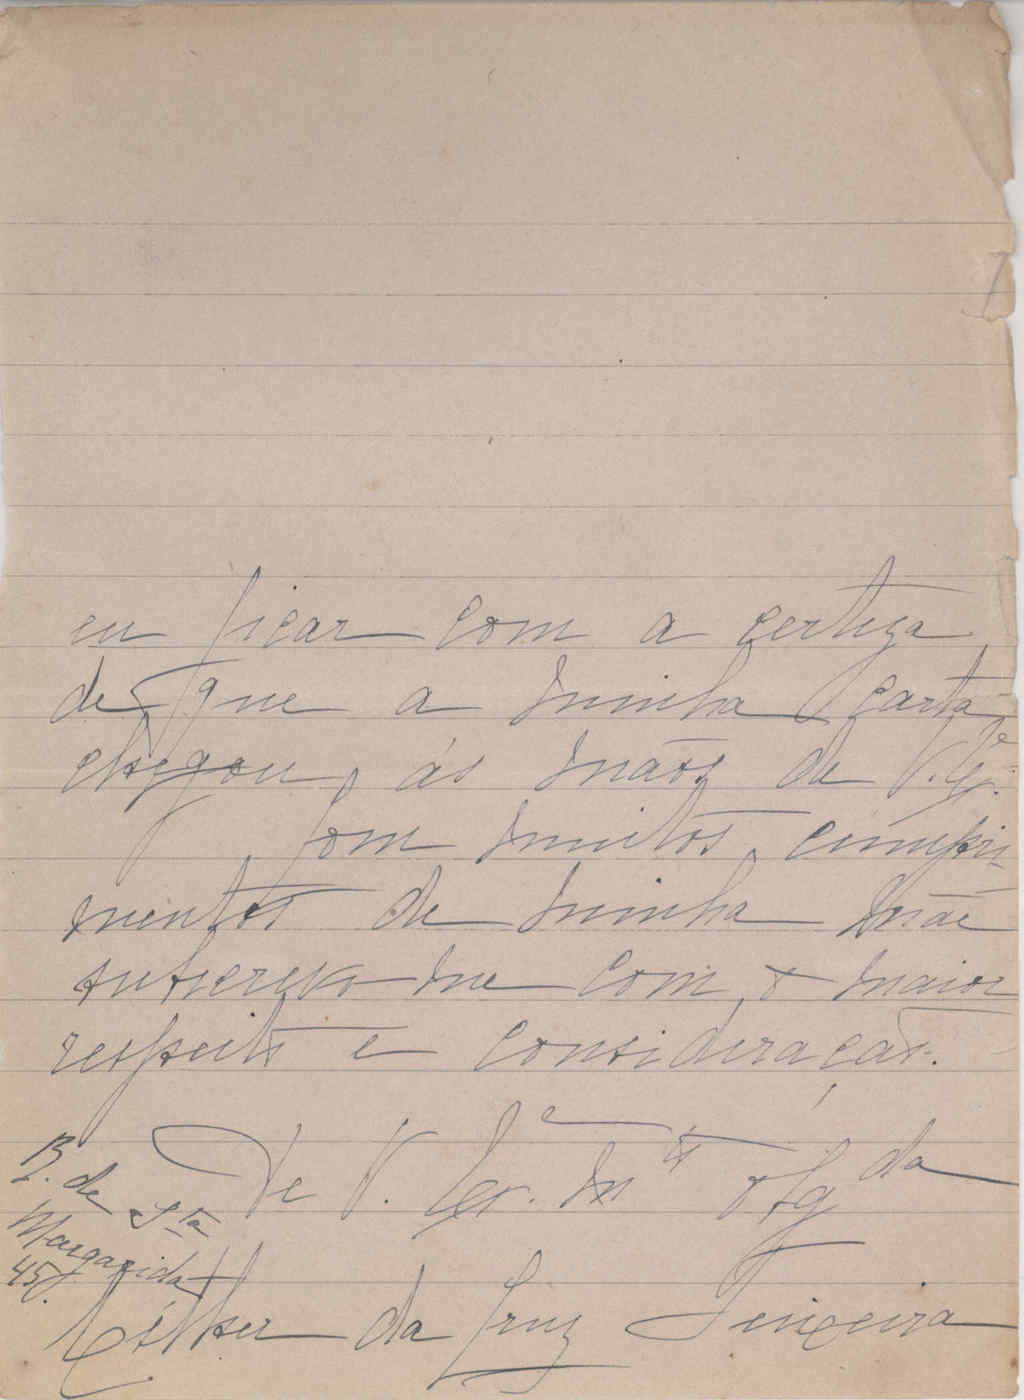 eu ficar com a certeza
de que a minha carta
chegou ás mãos de V. Ex.ª
Com muitos cumpri-
mentos de minha mãe
subscrevo-me com o maior
respeito e consideração.
De V. Ex. m.to obg.da
B. de Sta
Margarida
45
Esther da Cruz Teixeira